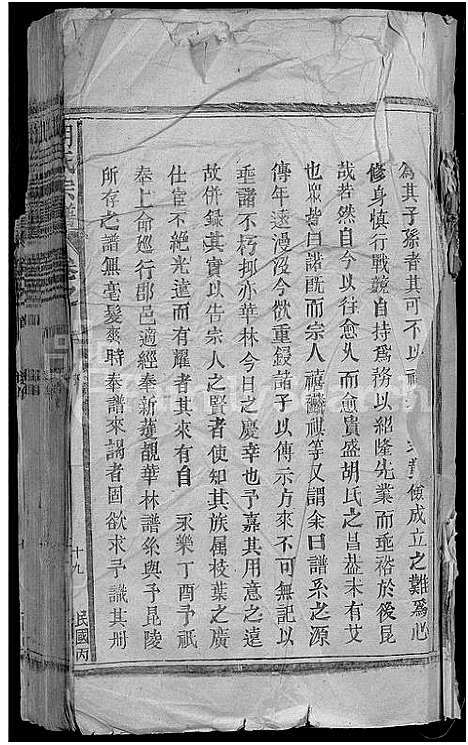 為其子孫者其可不以 儉成立之難為心
修身慎行戰兢自持為務以紹隆先業而垂裕於後昆
哉若然自今以往愈久而愈貴盛胡氏之昌葢未有艾
也眾皆曰諾既而宗人禧麟祺等又謂余曰譜系之源
傳年遠漫沒今欲重録諸子以傳示方來不可無記以
垂諸不朽抑亦華林今日之慶幸也予嘉其用意之遠
故併録其實以告宗人之賢者使知其族属枝葉之廣
仕宦不絶光遠而有耀者其來有自 永樂丁酉予祇
奉上命廵行郡邑適經奉新莚觀華林譜系與予昆陵
所存之譜無毫髮爽時奉譜來謁者固欲求予識其刋
氏宗譜
十九
民國丙